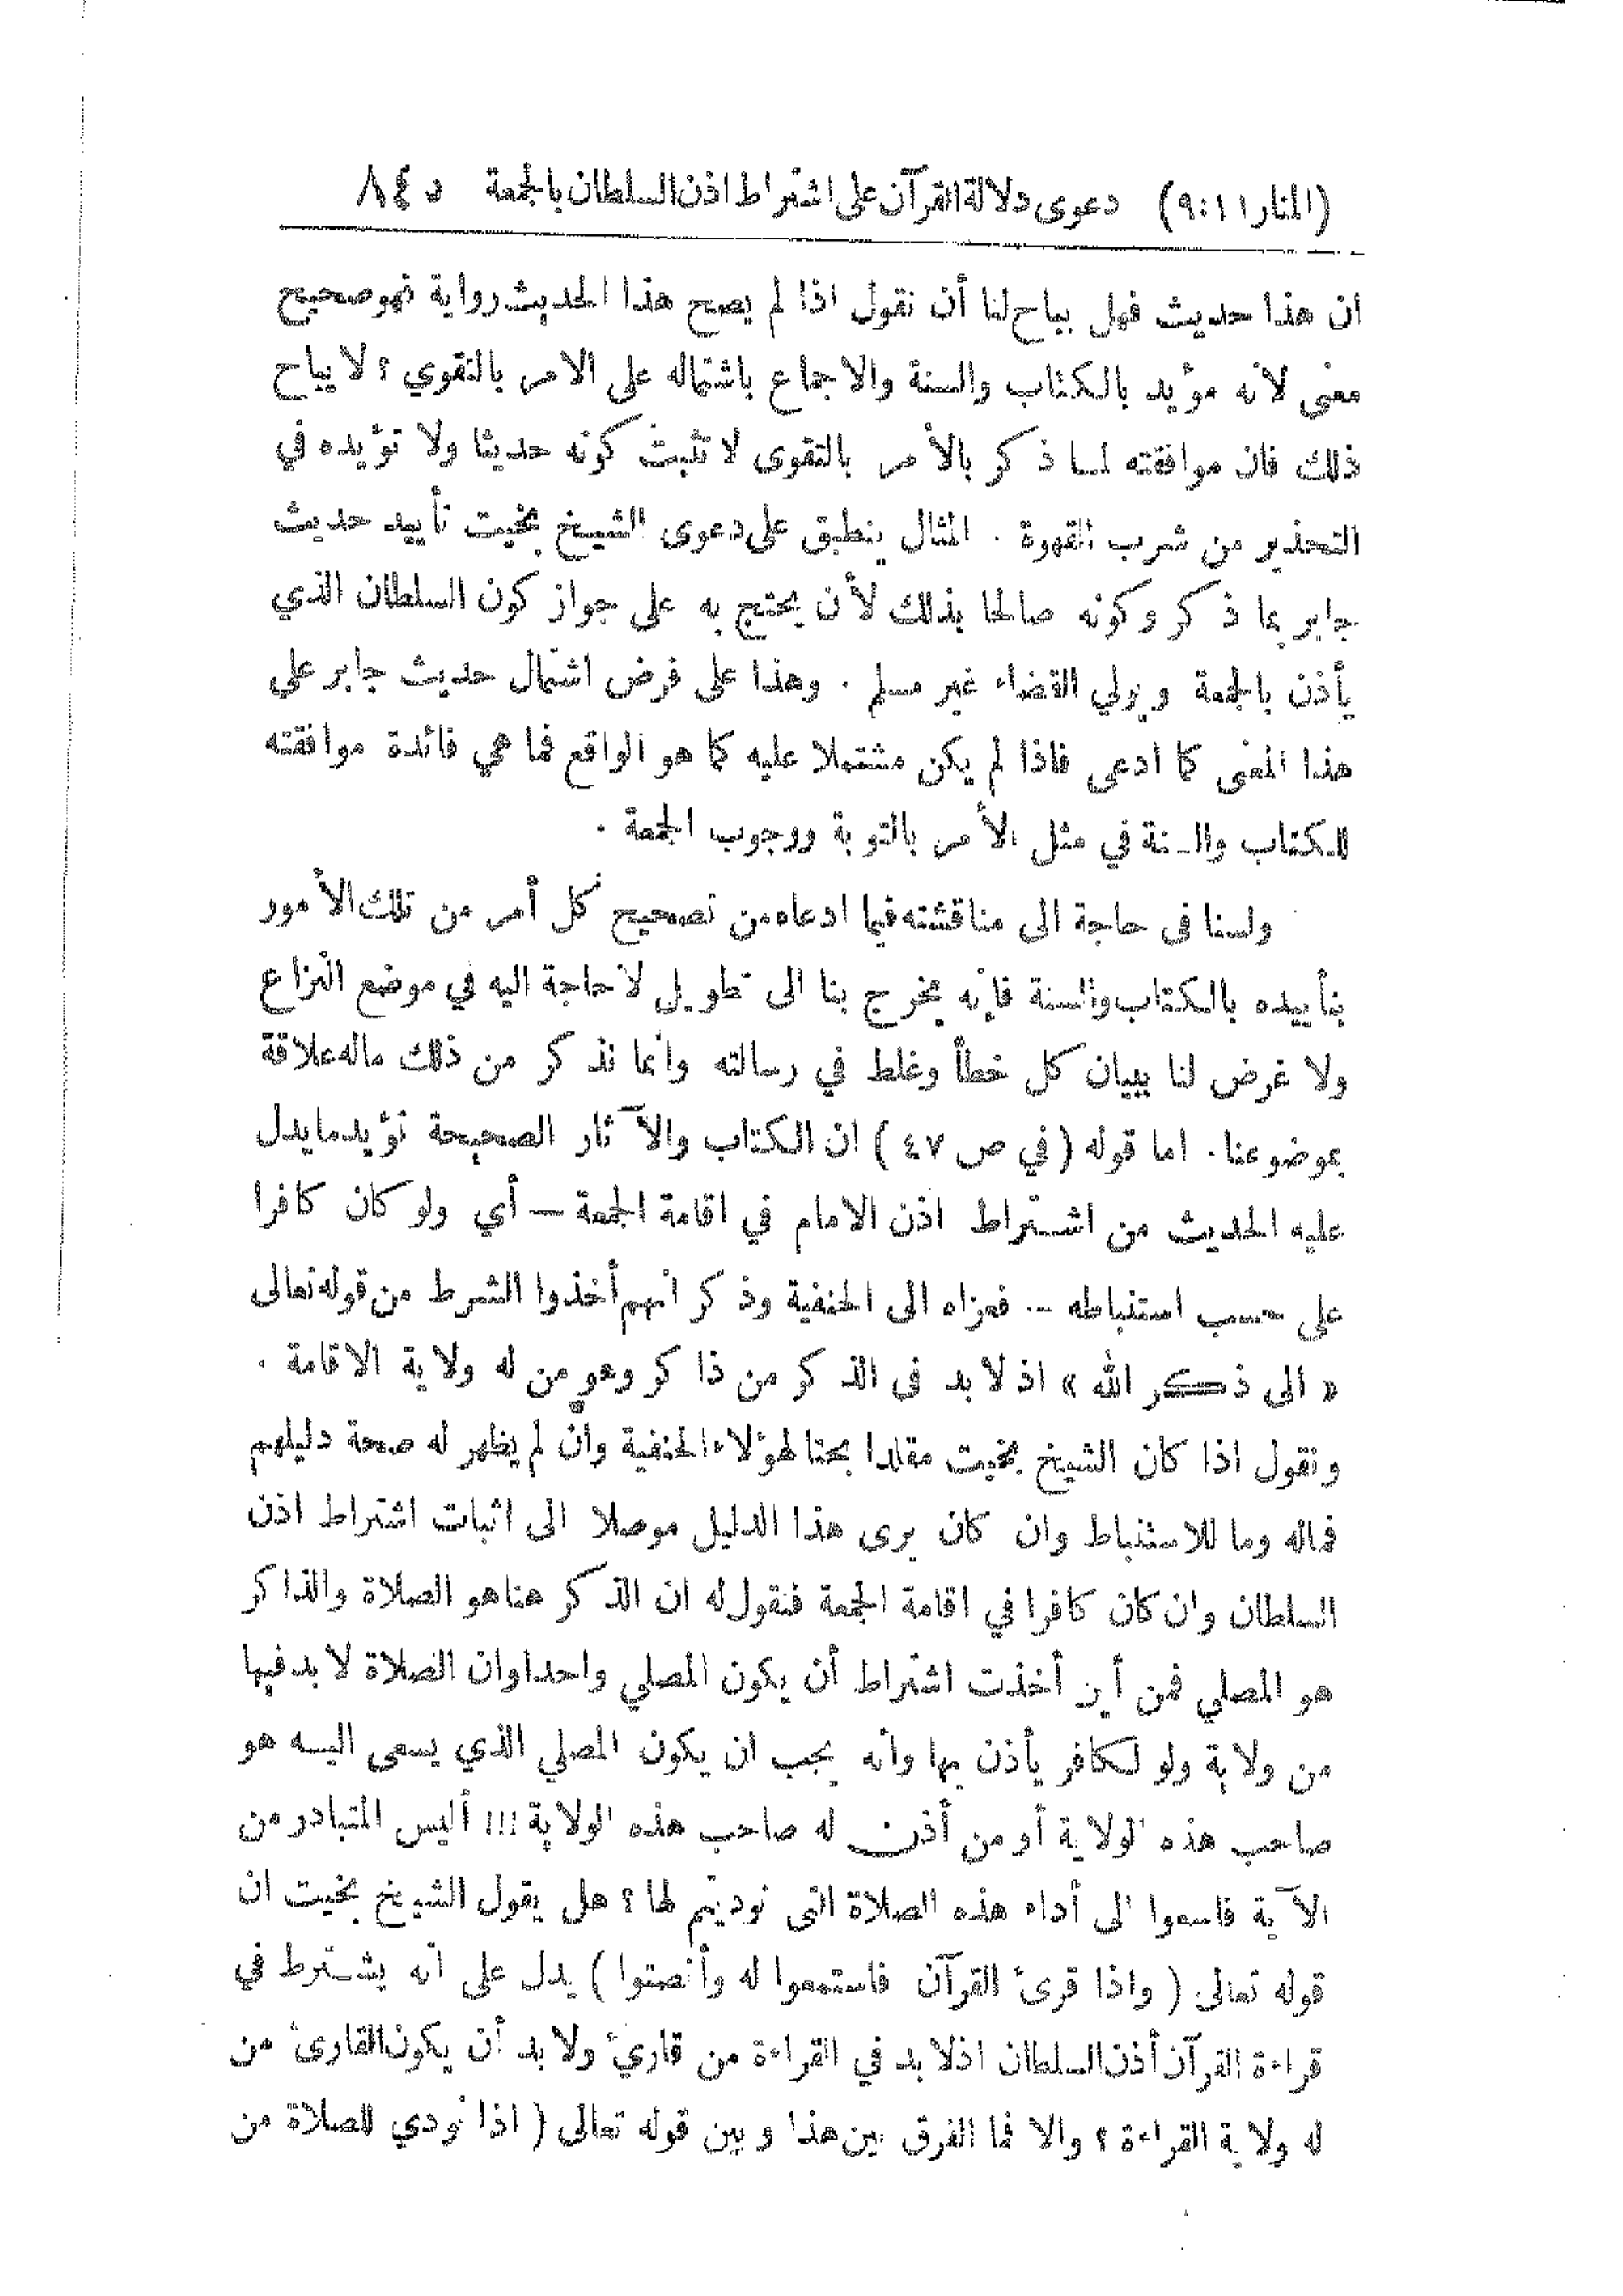 (المنار ١١:٩) دعوى دلالة القرآن على اشتراط اذن السلطان بالجمعة ٨٤٥
ان هذا حديث فهل يباح لنا أن نقول اذا لم يصح هذا الحديث رواية فهو صحيح
معنى لأنه مؤيد بالكتاب والسنة والاجماع باشتماله على الامر بالتقوي ؟ لا يباح
ذلك فان موافقته لما ذكر بالأمر بالتقوى لا تثبت كونه حديثا ولا تؤيده في
التحذير من شرب القهوة . المثال ينطبق على دعوى الشيخ بخيت تأييد حديث
جابر بما ذكر وكونه صالحا بذلك لأن يحتج به على جواز كون السلطان الذي
يأذن بالجمعة ويولي القضاء غير مسلم . وهذا على فرض اشتمال حديث جابر على
هذا المعنى كما ادعى فاذا لم يكن مشتملا عليه كما هو الواقع فما هي فائدة موافقته
للكتاب والسنة في مثل الأمر بالتوبة ووجوب الجمعة .
ولسنا فى حاجة الى مناقشته فيما ادعاه من تصحيح كل أمر من تلك الأمور
بتأييده بالكتاب والسنة فإنه يخرج بنا الى تطويل لا حاجة اليه في موضع النزاع
ولا غرض لنا ببيان كل خطأ وغلط في رسالته وانما نذكر من ذلك ماله علاقة
بموضوعنا . اما قوله (في ص ٤٧) ان الكتاب والآثار الصحيحة تؤيد ما يدل
عليه الحديث من اشتراط اذن الامام في اقامة الجمعة — أي ولو كان كافرا
على حسب استنباطه — فعزاه الى الحنفية وذكر انهم أخذوا الشرط من قوله تعالى
« الى ذكر الله » اذ لا بد فى الذكر من ذاكر وهو من له ولاية الاقامة .
ونقول اذا كان الشيخ بخيت مقلدا بحتا لهؤلاء الحنفية وان لم يظهر له صحة دليلهم
فماله وما للاستنباط وان كان يرى هذا الدليل موصلا الى اثبات اشتراط اذن
السلطان وان كان كافرا في اقامة الجمعة فنقول له ان الذكر هنا هو الصلاة والذاكر
هو المصلي فمن أين أخذت اشتراط أن يكون المصلي واحدا وان الصلاة لا بد فيها
من ولاية ولو لكافر يأذن بها وانه يجب ان يكون المصلي الذي يسعى اليه هو
صاحب هذه الولاية أو من أذن له صاحب هذه الولاية !!! أليس المتبادر من
الآية فاسعوا الى أداء هذه الصلاة التى نوديتم لها ؟ هل يقول الشيخ بخيت ان
قوله تعالى ( واذا قرئ القرآن فاستمعوا له وأنصتوا ) يدل على انه يشترط في
قراءة القرآن أذن السلطان اذلا بد في القراءة من قارئ ولا بد أن يكون القارئ من
له ولاية القراءة ؟ والا فما الفرق بين هذا وبين قوله تعالى ( اذا نودي للصلاة من